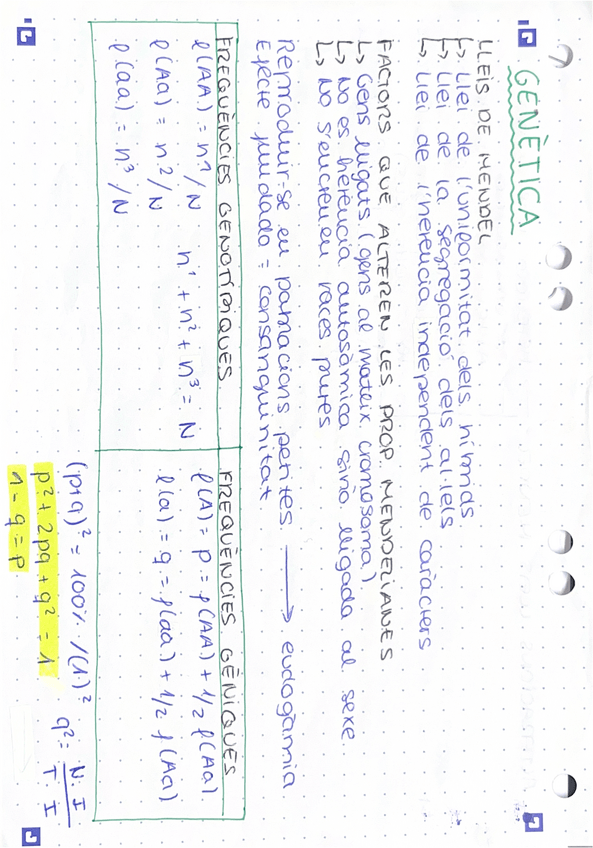 GENÈTICA
LLEIS DE MENDEL
↳ Llei de l'uniformitat dels híbrids
↳ Llei de la segregació dels al·lels
↳ Llei de l'herència independent de caràcters
FACTORS QUE ALTEREN LES PROP. MENDELIANES
↳ Gens lligats (gens al mateix cromosoma)
↳ No es herència autosòmica sinó lligada al sexe
↳ No s'encreuen races pures
Reproduir-se en poblacions petites. → endogàmia
Efecte fundador = consanguinitat
FREQÜÈNCIES GENOTÍPIQUES
f(AA) = n¹/N
f(Aa) = n²/N n¹ + n² + n³ = N
f(aa) = n³/N
FREQÜÈNCIES GÈNIQUES
f(A) = p = f(AA) + 1/2 f(Aa)
f(a) = q = f(aa) + 1/2 f(Aa)
(p+q)² = 100% /(1)² q² = N.I / T.I
p² + 2pq + q² = 1
1 - q = p